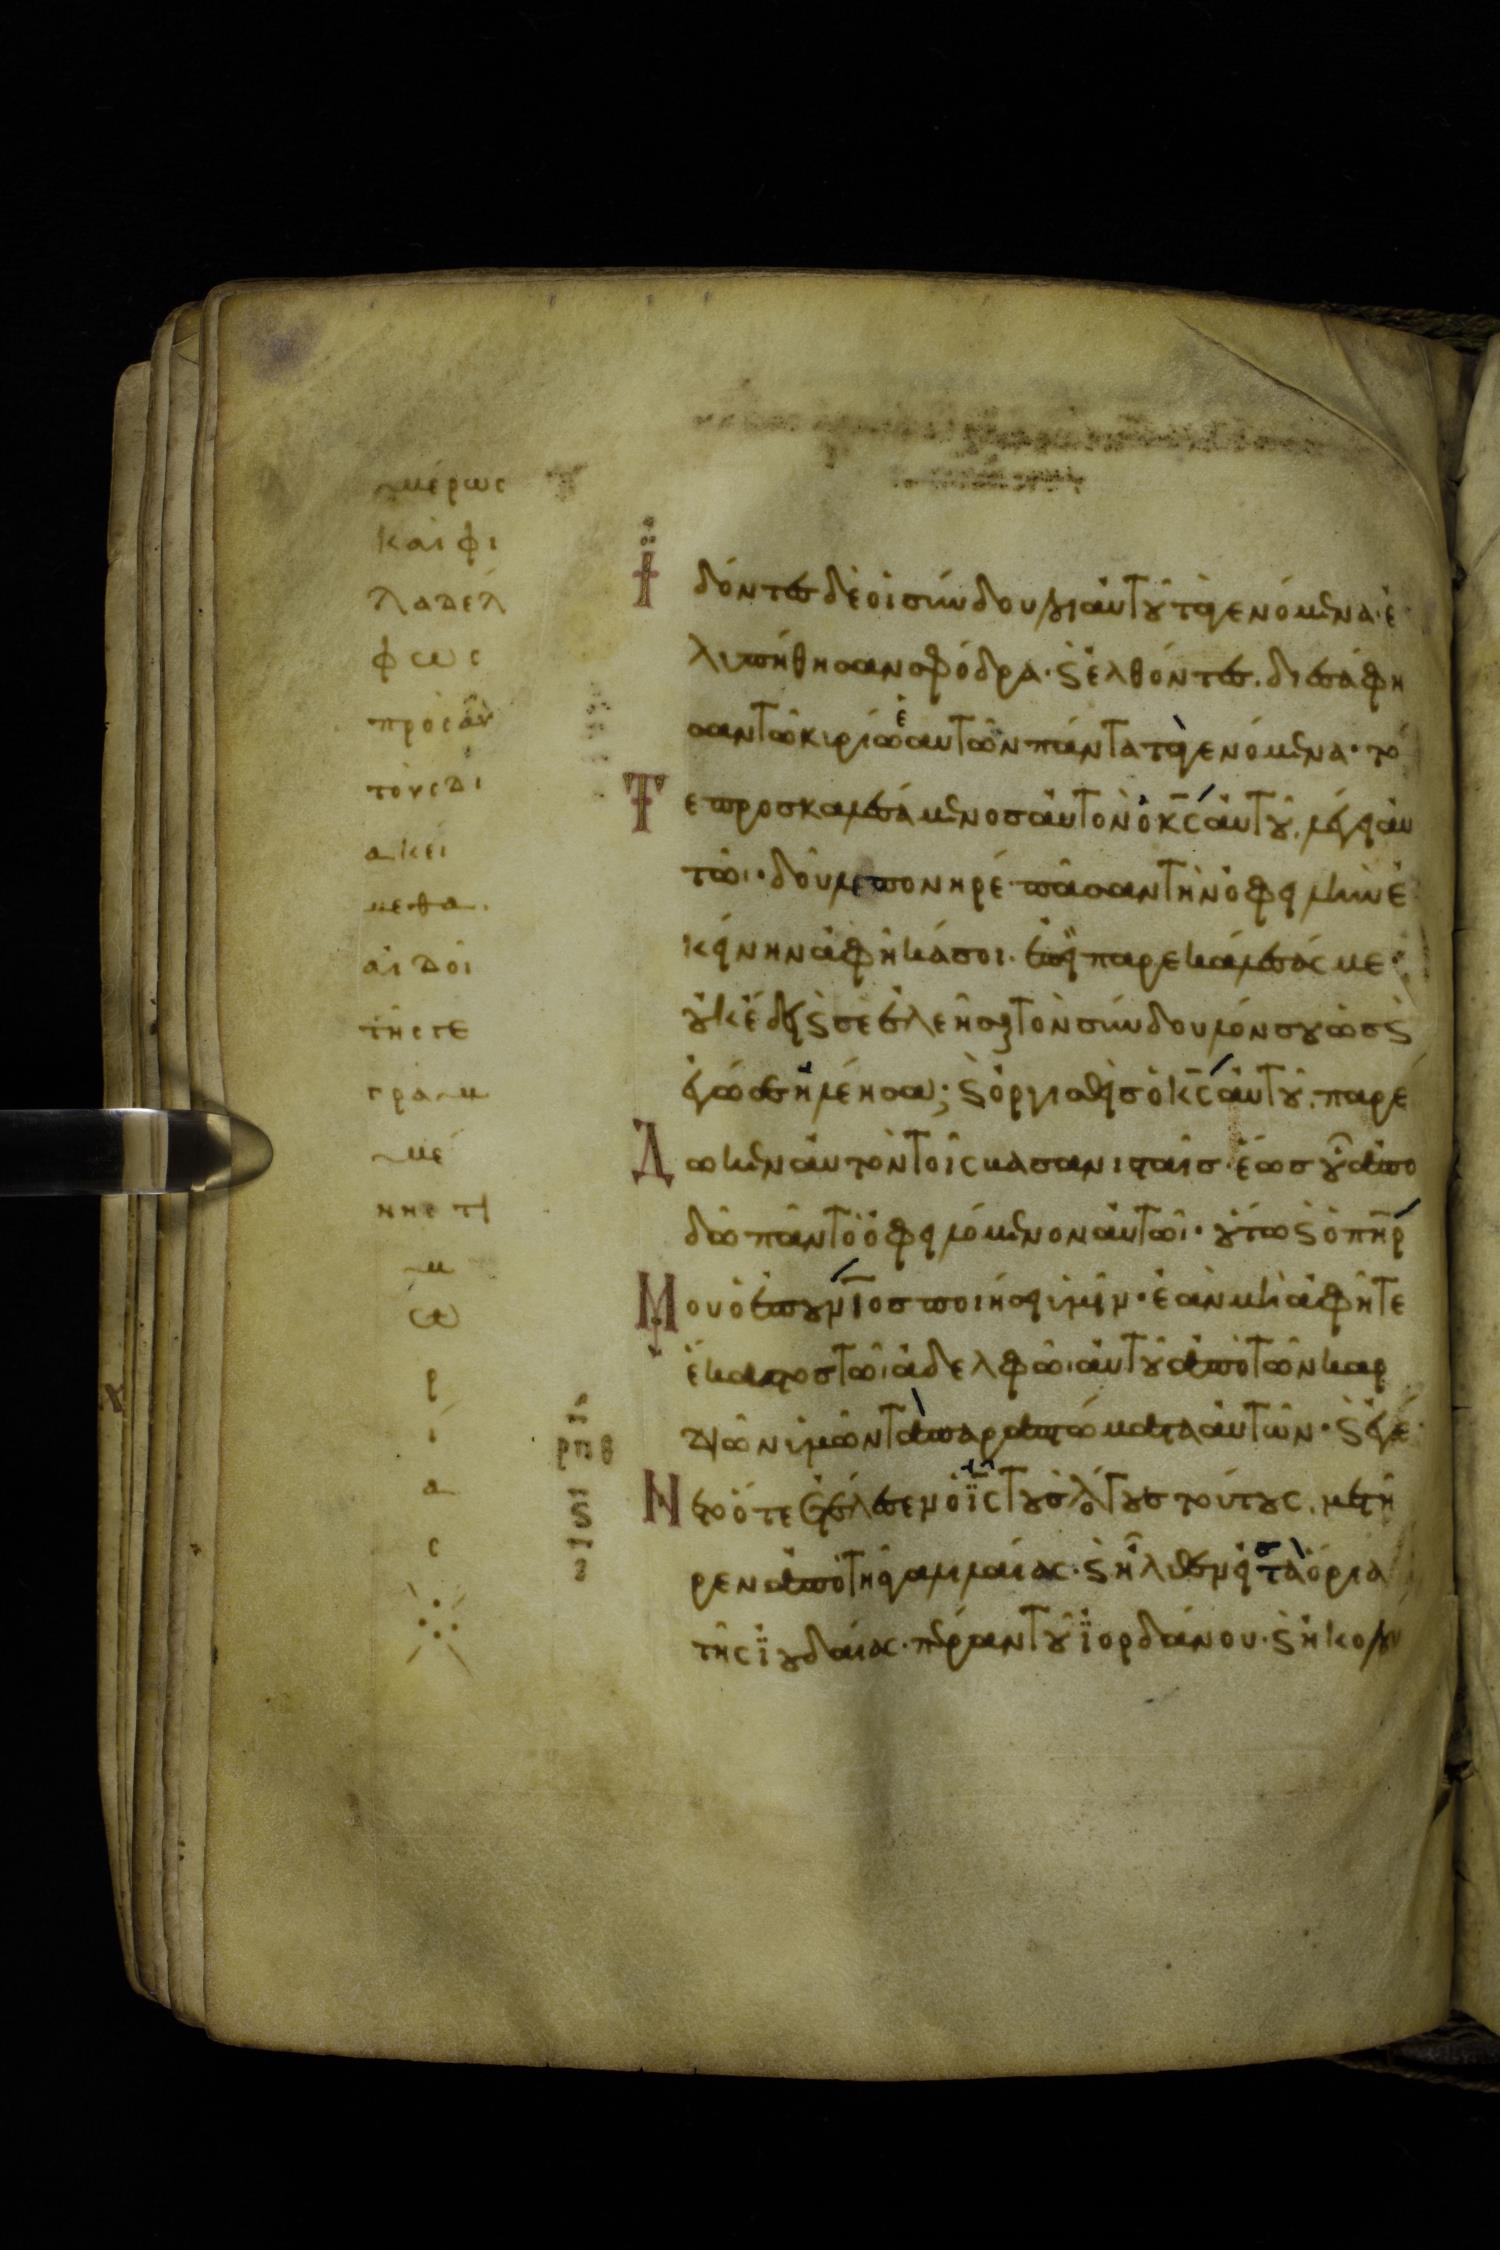 μέρως
και φι
λαδελ
φως
προς αυ
τους δι
ακεί
μεθα.
αιδοι
της τε
τραμ
μέ
νης τι
μ
ω
ρ
ί
α
ς
Ἰδόντες δὲ οἱ σύνδουλοι αὐτοῦ τὰ γενόμενα· ἐ
λυπήθησαν σφόδρα· ϗ ἐλθόντες. διεσάφη
σαν τῶ κυρίω ἑαυτῶν πάντα τὰ γενόμενα· τό
Τε προσκαλεσάμενος αὐτὸν ὁ κ̅ς̅ αὐτοῦ. λέγει αὐ
τῶι· δοῦλε πονηρέ· πᾶσαν τὴν ὀφειλὴν ἐ
κείνην ἀφῆκά σοι. ἐπεὶ παρεκάλεσάς με·
οὐκ ἔδει ϗ σὲ ἐλεῆσαι τὸν σύνδουλόν σου ὡς ϗ
ἐγώ σε ἠλέησα; ϗ ὀργισθεὶς ὁ κ̅ς̅ αὐτοῦ. παρέ
Δωκεν αὐτὸν τοῖς βασανισταῖς· ἕως οὗ ἀπο
δῶ πᾶν τὸ ὀφειλόμενον αὐτῶι· οὕτω ϗ ὁ π̅η̅ρ̅
Μου ὁ ἐπουράνιος ποιήσει ὑμῖν· ἐὰν μὴ ἀφῆτε
ἕκαστος τῶι ἀδελφῶι αὐτοῦ ἀπὸ τῶν καρ
διῶν ὑμῶν τὰ παραπτώματα αὐτῶν· ϗ ἐγέ
ρπθ
ϛ
Νετο ὅτε ἐτέλεσεν ὁ ι̅ς̅ τοὺς λόγους τούτους. μετῆ
ρεν ἀπὸ τῆς γαλιλαίας· ϗ ἦλθεν εἰς τὰ ὅρια
τῆς ἰουδαίας· πέραν τοῦ ἰορδάνου· ϗ ἠκολού